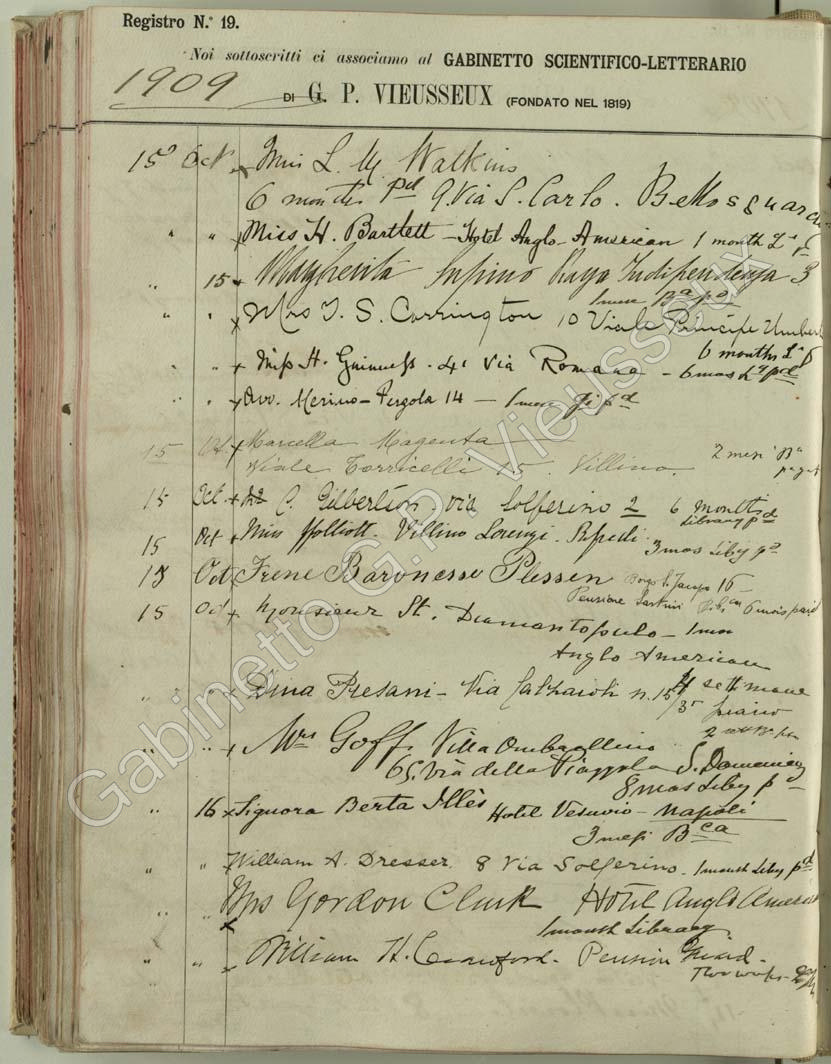 Registro N.° 19.
Noi sottoscritti ci associamo al GABINETTO SCIENTIFICO-LETTERARIO
1909
DI G. P. VIEUSSEUX (FONDATO NEL 1819)
15 Oct Miss L. M. Watkins
6 months pd 9 Via S. Carlo. Bellosguardo
" " Miss H. Bartlett – Hotel Anglo-American 1 month
" 15 Margherita Supino Piazza Indipendenza 3
1 mese Ba pd
" " Mrs T. S. Carrington 10 Viale Principe Umberto
6 months
" " Miss H. Guinness. 41 Via Romana – 6 mos Ly pd
" " Avv. Merino – Pergola 14 – 1 mese pd
15 Ot. Marcella Magenta 2 mesi Ba
Viale Torricelli 15. Villino. pagati
15 Oct. C. Gilbertson. via Solferino 2 6 Months
Library pd
15 Oct Miss Villino Lorenzi. Rifredi 3 mos Liby pd
15 Oct Irene Baronesse Plessen 16 –
Pensione 6 mois paid
15 Oct Monsieur St. Diamantopulo – 1 mese
Anglo American
" " Dina Presani – Via n. 15 settimane
piano
2
" " Mrs Goff. Villa Ombrellino
65 Via della Piazzola S. Domenico
8 mos Liby p
" 16 Signora Berta Illés Hotel Vesuvio – Napoli
3 mesi Bca
" " William A. Dresser. 8 Via Solferino – 1 month Liby pd
" " Mrs Gordon Clark Hotel Anglo American
1 month Library
" " William H. Crawford – Pension Girard –
Two weeks –
Gabinetto G.P. Vieusseux